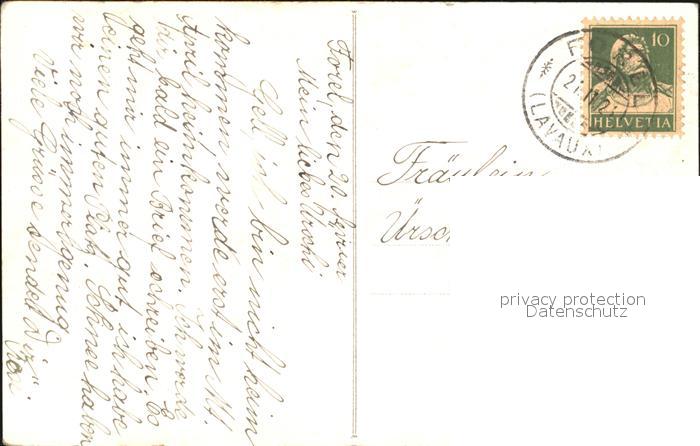 Forel, den 20. Februar
Mein liebes Urseli
Gell, ich bin nicht heim
kommen, werde erst im Mt.
April heimkommen. Ich werde
dir bald ein Brief schreiben. Es
geht mir immer gut ich habe
einen guten Platz. Schnee haben
wir noch immer genug
Viele Grüsse sendet Dir
Fräulein
Urs
10
HELVETIA
FOREL
(LAVAUX)
privacy protection
Datenschutz